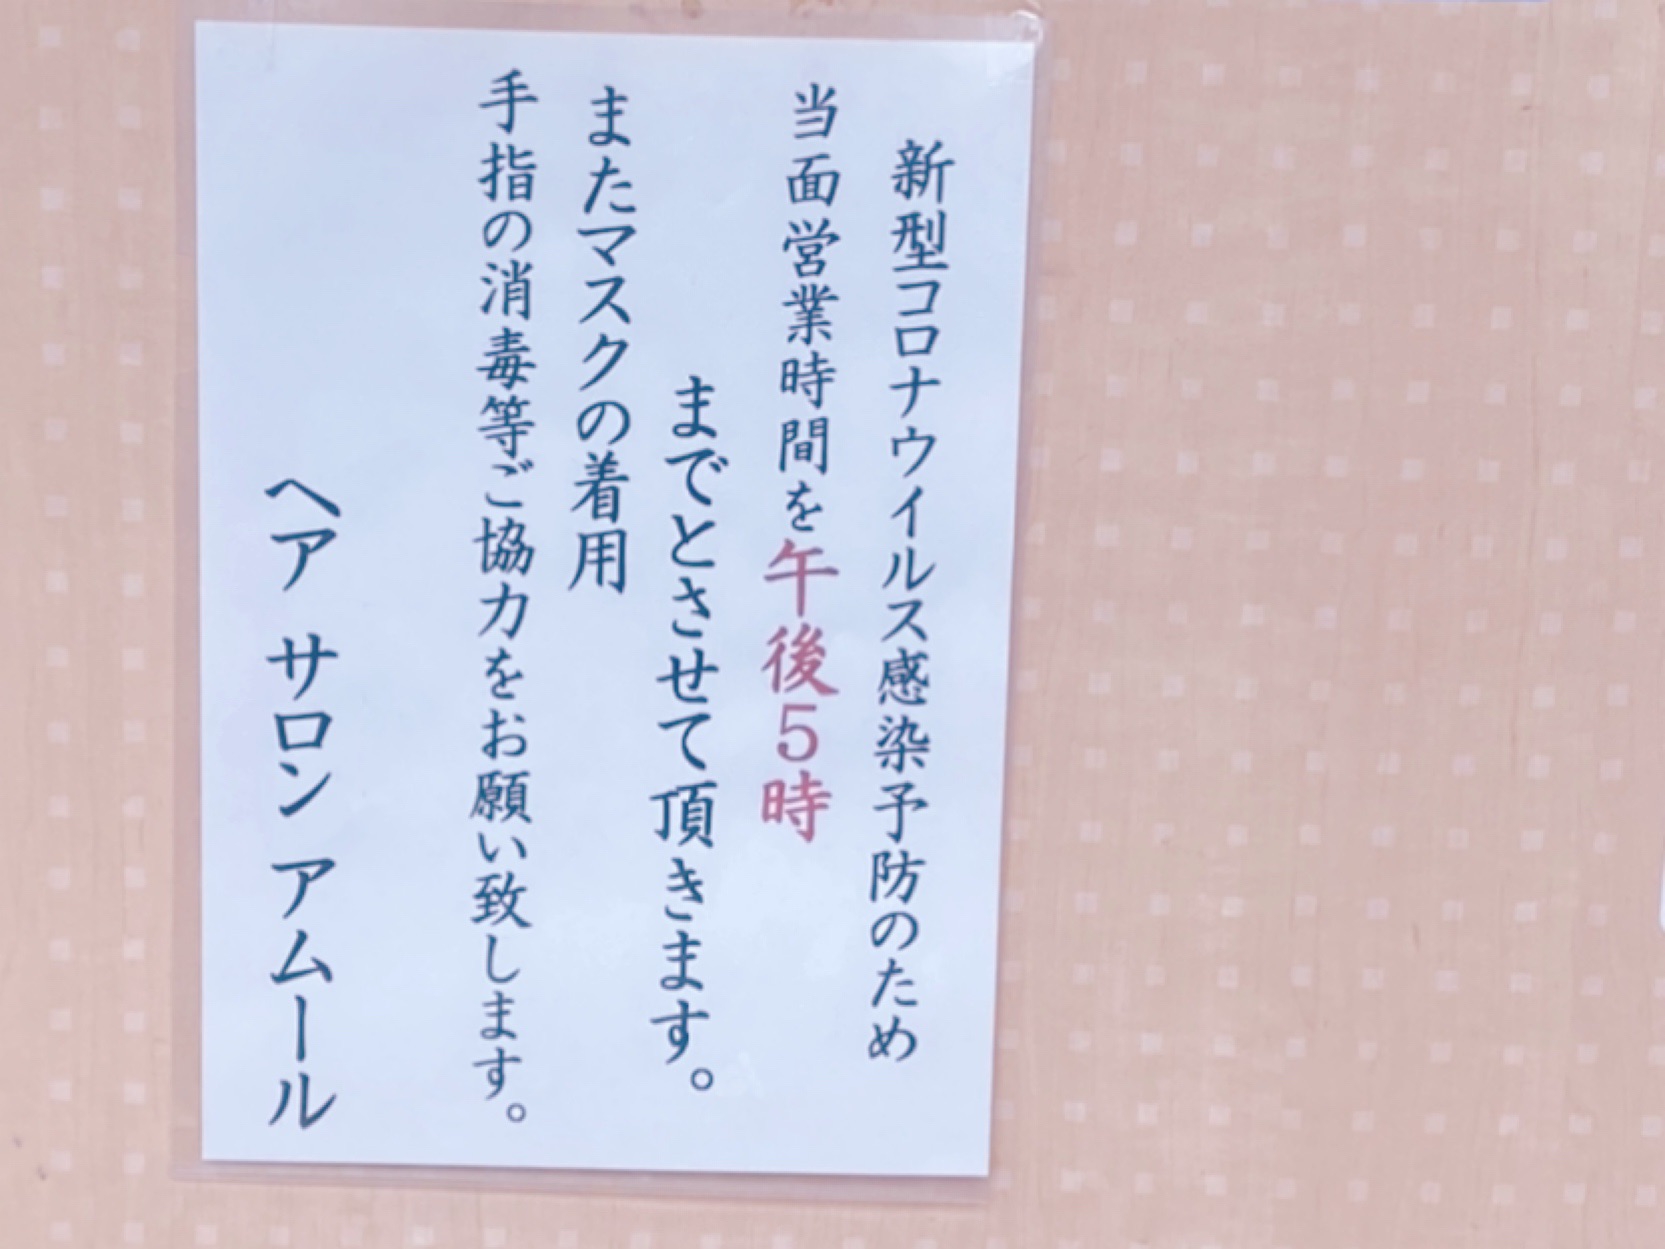 新型コロナウイルス感染予防のため
当面営業時間を午後5時
までとさせて頂きます。
またマスクの着用
手指の消毒等ご協力をお願い致します。
ヘア サロン アムール